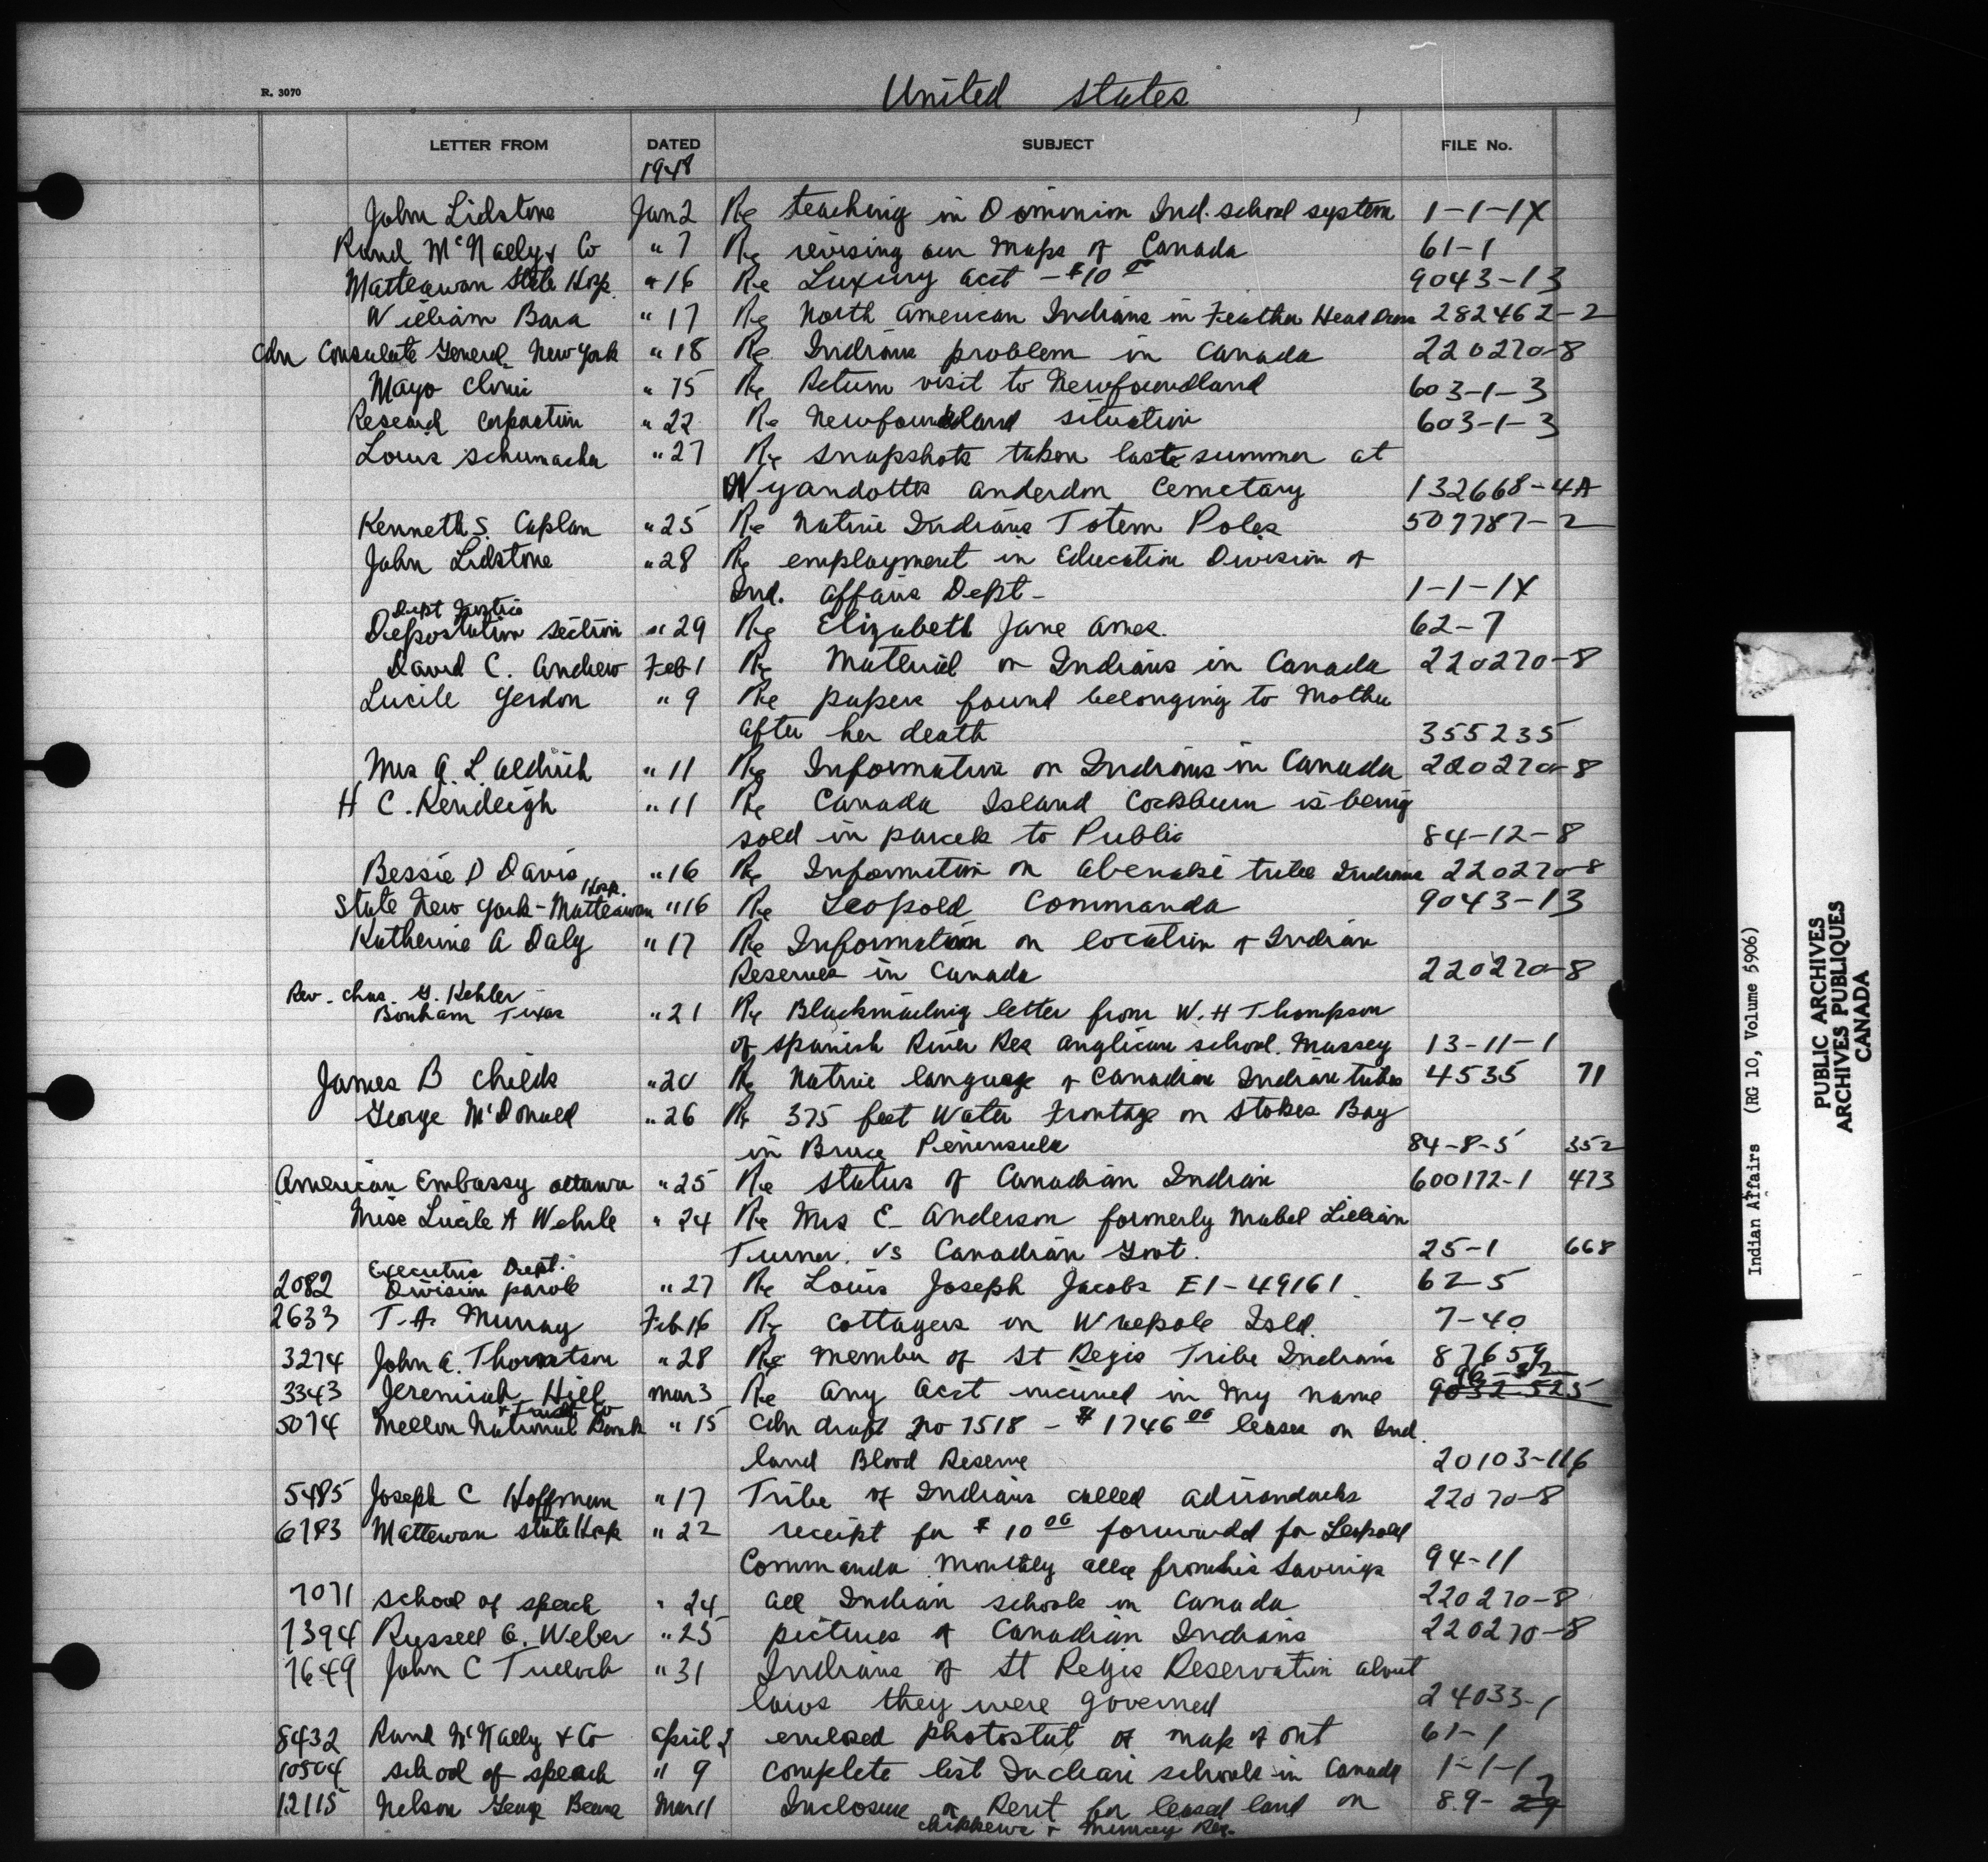 R. 3070
United States
LETTER FROM DATED SUBJECT FILE No.
1948
John Lidstone Jan 2 Re teaching in Dominion Ind. school system 1-1-1X
Rand McNally & Co " 7 Re revising our Maps of Canada 61-1
Matteawan State Hosp. " 16 Re Luxury acct - $10 9043-13
William Bara " 17 Re North American Indians in Feather Head Dress 282462-2
Cdn Consulate General New York " 18 Re Indians problem in Canada 220270-8
Mayo Clinic " 15 Re Return visit to Newfoundland 603-1-3
Research Corporation " 22 Re Newfoundland situation 603-1-3
Louis Schumacher " 27 Re snapshots taken last summer at
Wyandotte Anderdon Cemetary 132668-4A
Kenneth S. Caplan " 25 Re Native Indians Totem Poles 507787-2
John Lidstone " 28 Re employment in Education Division of
Ind. Affairs Dept- 1-1-1X
Dept Justice
Deportation section " 29 Re Elizabeth Jane Ames. 62-7
David C. Andrew Feb 1 Re Material on Indians in Canada 220270-8
Lucile Yerdon " 9 Re papers found belonging to Mother
after her death 355235
Mrs A. L. Aldrich " 11 Re Information on Indians in Canada 220270-8
H C. Kendeigh " 11 Re Canada Island Cockburn is being
sold in parcels to Public 84-12-8
Bessie D Davis " 16 Re Information on Abenaki tribe Indians 220270-8
State New York - Matteawan Hosp. " 16 Re Leopold Commanda 9043-13
Katherine A Daly " 17 Re Information on location of Indian
Reserves in Canada 220270-8
Rev. Chas. G. Kehler
Bonham Texas " 21 Re Blackmailing letter from W. H Thompson
of Spanish River Res Anglican school. Massey 13-11-1
James B Childs " 20 Re Native language of Canadian Indian tribes 4535 71
George McDonald " 26 Re 375 feet Water Frontage on Stokes Bay
in Bruce Peninsula 84-8-5 352
American Embassy Ottawa " 25 Re status of Canadian Indian 600172-1 473
Miss Lucile A Wehrle " 24 Re Mrs E- Anderson formerly Mabel Lillian
Turner. vs Canadian Govt. 25-1 668
Executive Dept.
2082 Division parole " 27 Re Louis Joseph Jacobs E1-49161. 62-5
2633 T. A. Murray Feb 16 Re Cottagers on Walpole Isld. 7-40
3274 John A. Thornton " 28 Re member of St Regis Tribe Indians 87659
3343 Jeremiah Hill Mar 3 Re any acct incurred in my name 9032-525
5074 Mellon National Bank & Trust Co " 15 Cdn draft no 7518 - $1746 00 leases on Ind.
land Blood Reserve 20103-116
5485 Joseph C Hoffman " 17 Tribe of Indians called Adirondacks 22070-8
6783 Mattewan State Hosp " 22 receipt for $10 00 forwarded for Leopold
Commanda. Monthly allce from his Savings 94-11
7071 School of speech " 24 all Indian schools in Canada 220270-8
7394 Russell G. Weber " 25 pictures of Canadian Indians 220270-8
7649 John C Tulloch " 31 Indians of St Regis Reservation about
laws they were governed 24033-1
8432 Rand McNally & Co April enclosed photostat of map of Ont 61-1
10504 School of speech " 9 complete list Indian schools in Canada 1-1-1
12115 Nelson George Beaver Mar 11 Inclosure Rent for leased land on 8.9- 29 7
Chippewa & Muncey Res.
Indian Affairs (RG 10, Volume 5906)
PUBLIC ARCHIVES
ARCHIVES PUBLIQUES
CANADA